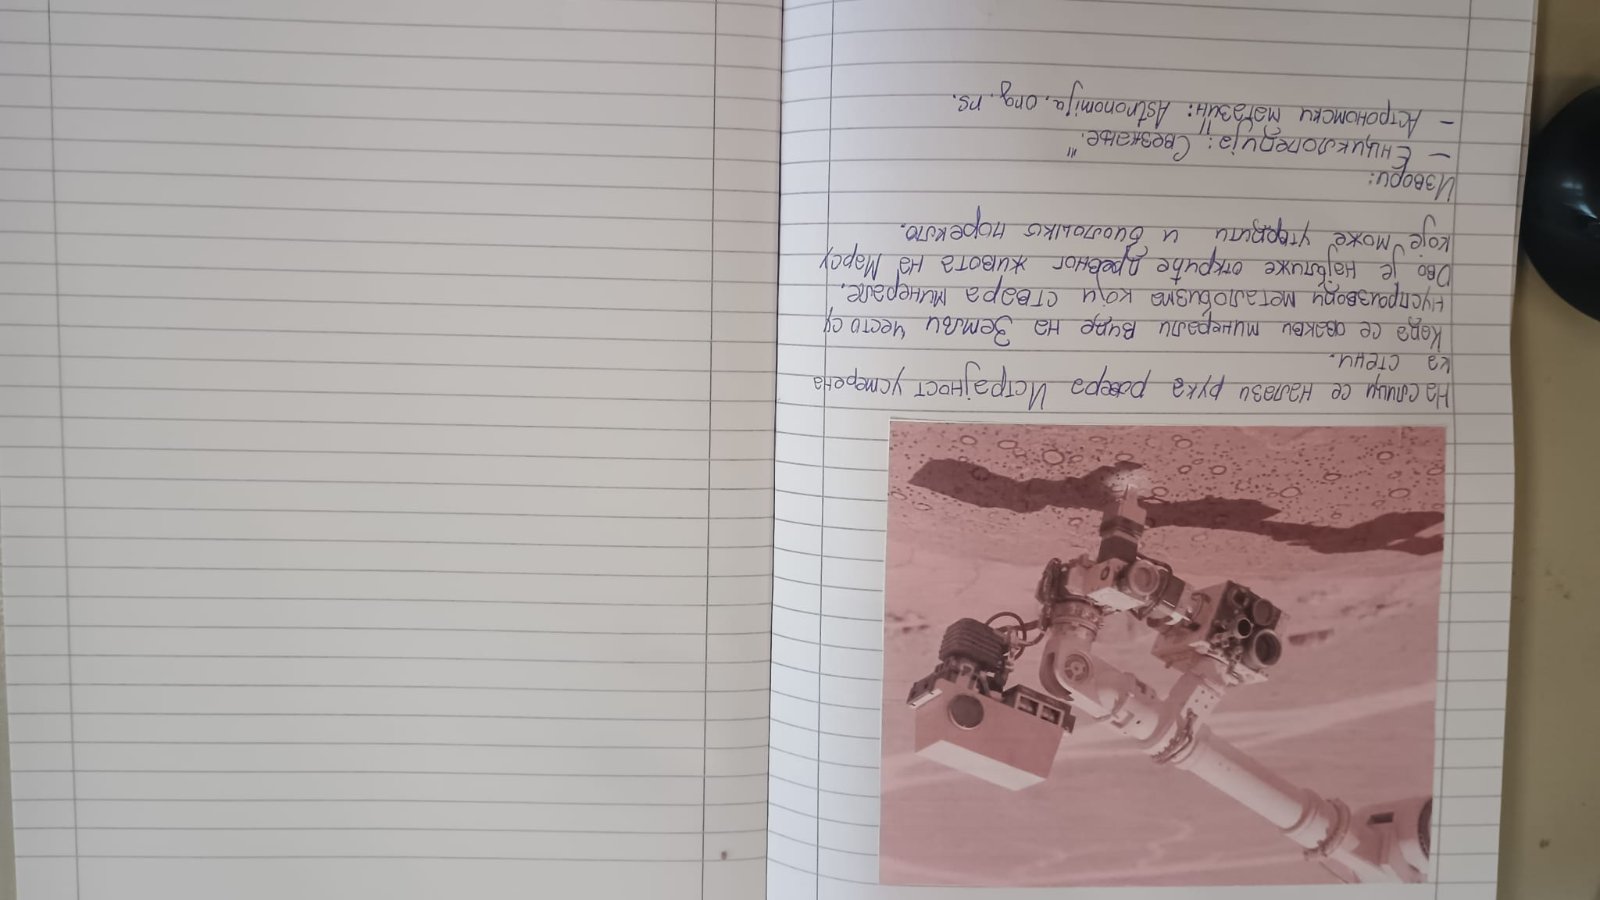 На слици се налази рука ровера Истрајност усмерена
ка стени.
Када се овакви минерали виде на Земљи често су
нуспроизводи металобизма који ствара минерале.
Ово је најближе откриће древног живота на Марсу
које може утврдити и биолошко порекло.
Извори:
– Енциклопедија: „Свезнање."
– Астрономски магазин: Astronomija.org.rs.